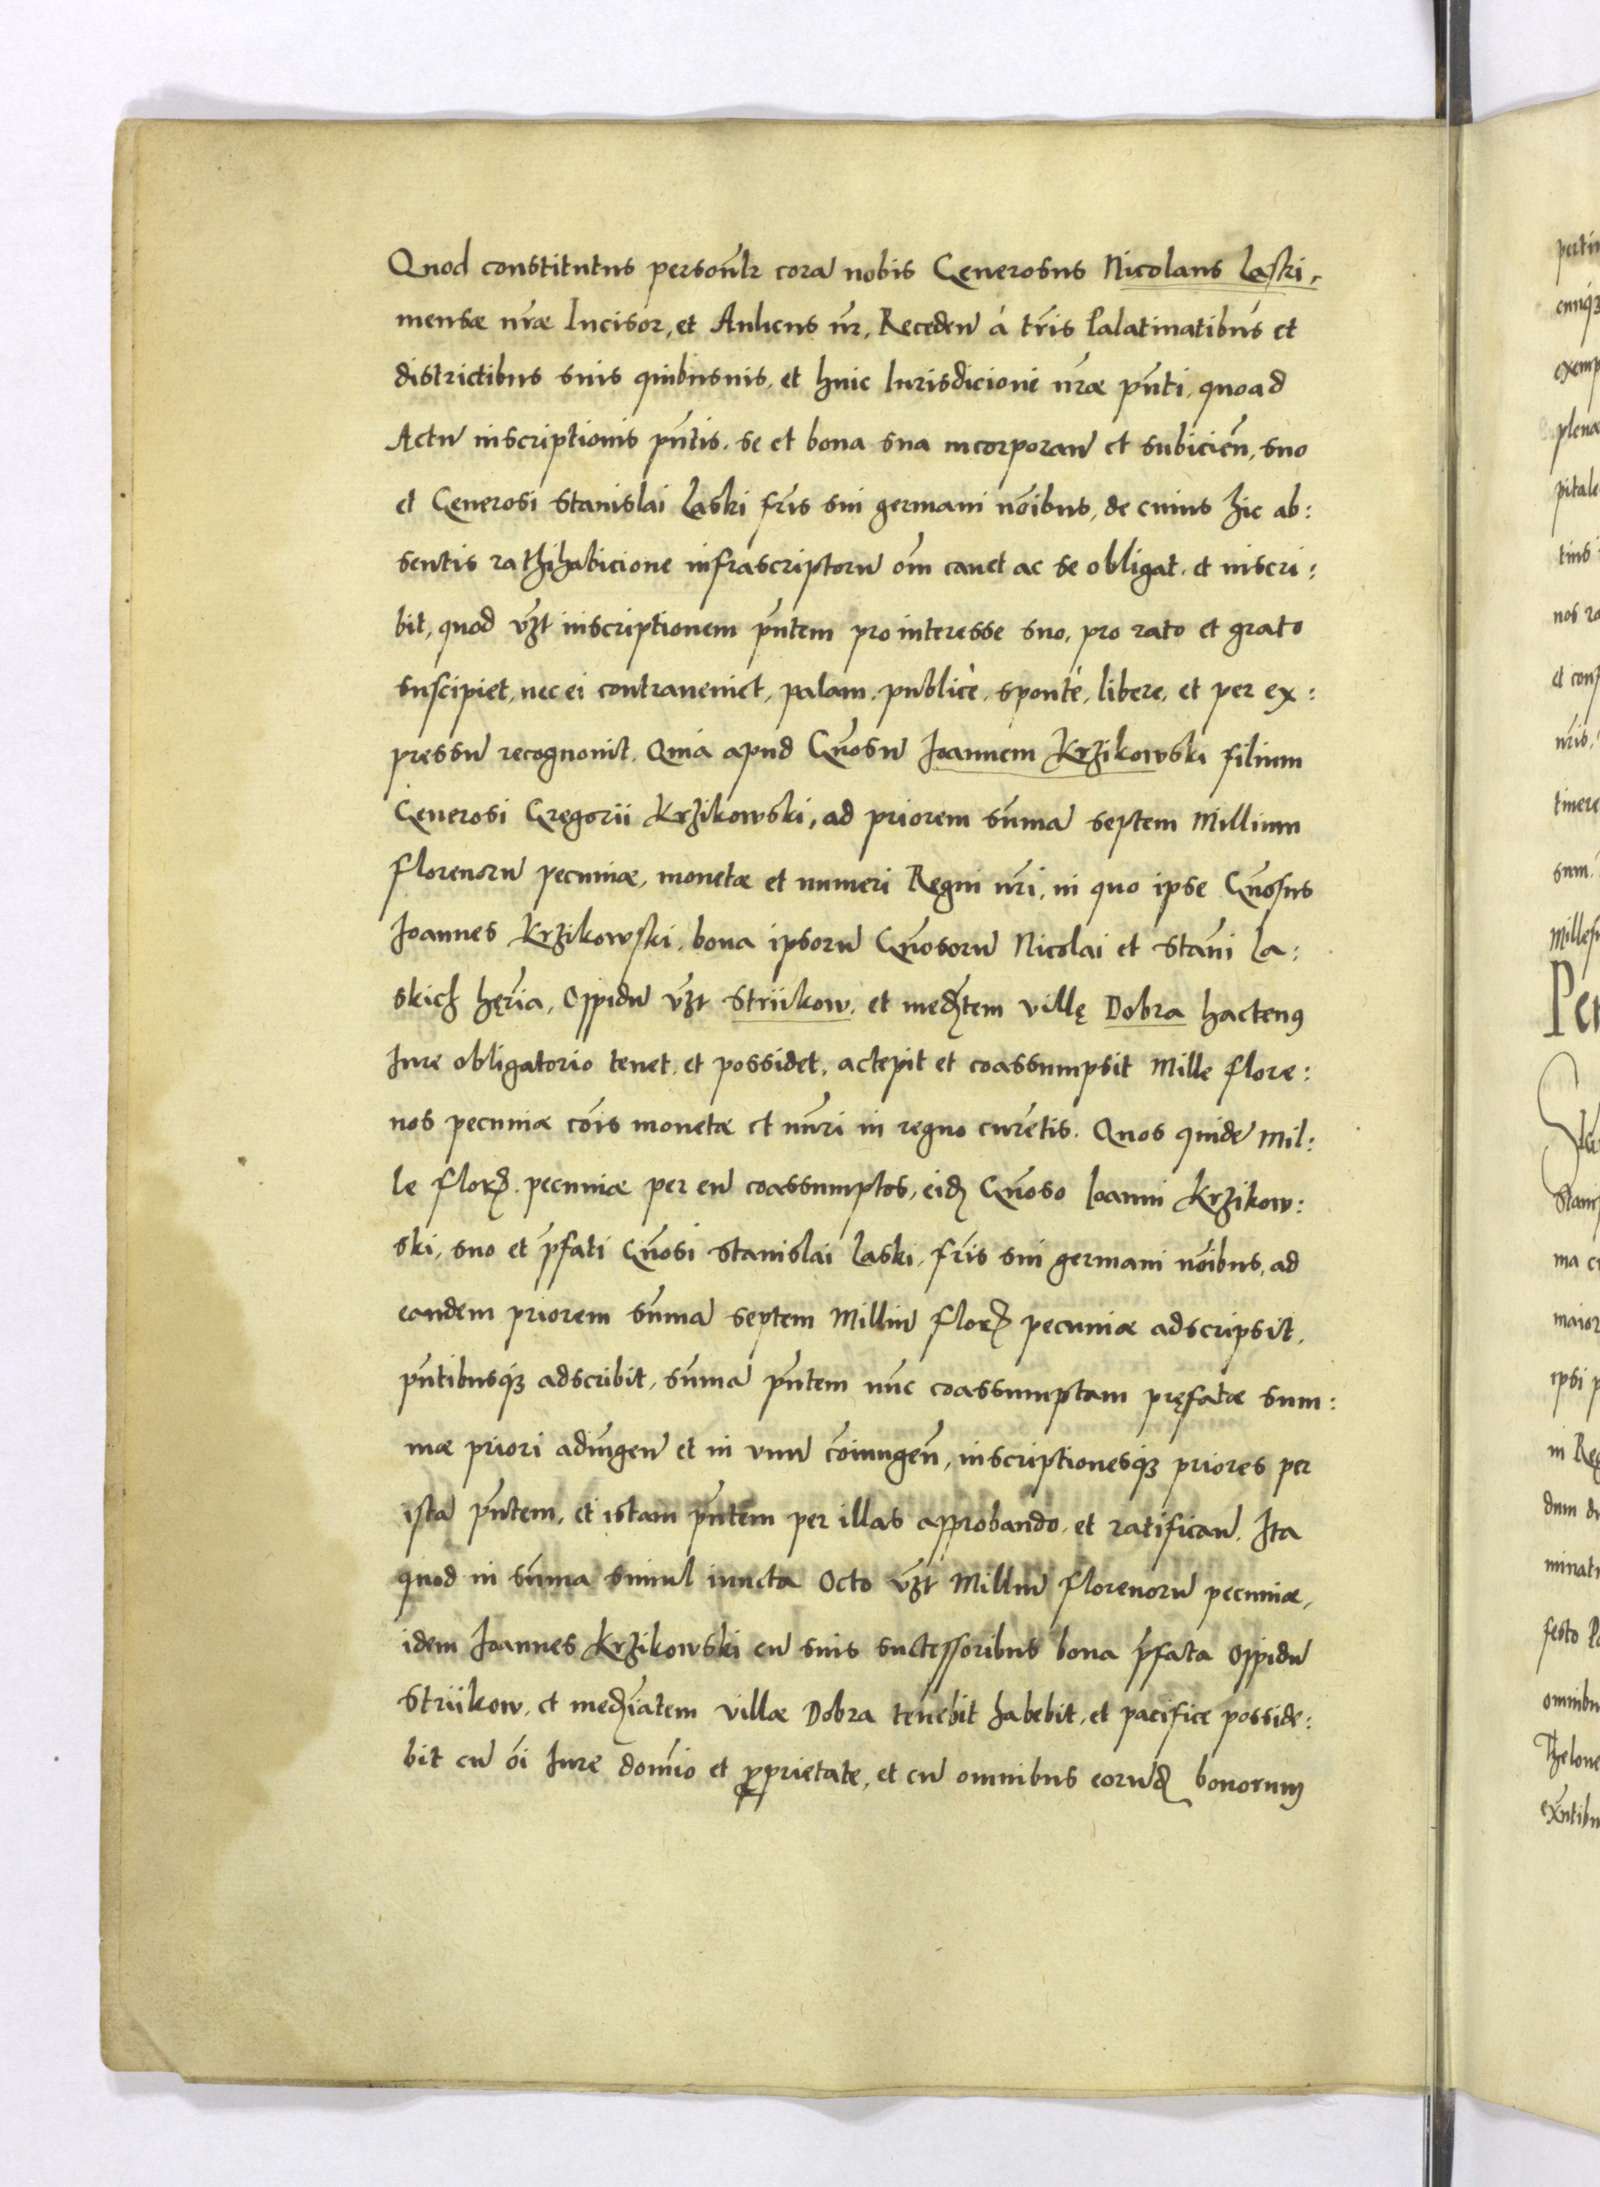 Quod constitutus personlr corā nobis Generosus Nicolaus Laski,
mensæ nr̄æ Incisor, et Aulicus nr̄, Receden̄ á tr̄ris Palatinatibus et
districtibus suis quibusuis, et huic Iurisdicioni nr̄æ pn̄ti, quoad
Actū inscriptionis pn̄tis, se et bona sua incorporan̄ et subicien̄, suo
et Generosi Stanislai Laski fr̄is sui germani noībus, de cuius hic ab:
sentis rathihabicione infrascriptorū om̄ cauet ac se obligat, et inscri:
bit, quod vʒt inscriptionem pn̄tem pro interesse suo, pro rato et grato
suscipiet, nec ei contraueniet, palam, publicè, spontè, libere, et per ex:
pressū recognouit. Quia apud Gn̄osū Joannem Krʒikowski filium
Generosi Gregorii Krʒikowski, ad priorem sūmā septem Millium
florenorū pecuniæ, monetæ et numeri Regni nr̄i, in quo ipse Gn̄osus
Joannes Krʒikowski, bona ipsorū Gn̄osorū Nicolai et Stan̄i La:
skich hęr̄ia, Oppidū vʒt Strÿkow, et medʒtem villę Dobra hactenꝰ
Jure obligatorio tenet, et possidet, accepit et coassumpsit Mille flore:
nos pecuniæ cōis monetæ et nūri in regno curētis. Quos quidē Mil:
le florꝭ. pecuniæ per eū coassumptos, eidʒ Gn̄oso Ioanni Krʒikow:
ski, suo et p̄fati Gn̄osi Stanislai Laski, fr̄is sui germani noībus, ad
eandem priorem sūmā septem Milliū florꝭ pecuniæ adscripsit,
pn̄tibusqʒ adscribit, sūmā pn̄tem nūc coassumptam pręfatæ sum:
mæ priori adiūgen̄ et in vnū cōiungen̄, inscriptionesqʒ priores per
istā pn̄tem, et istam pn̄tem per illas approbando, et ratifican̄. Ita
quod in sūma simul iuncta Octo vʒt Milliū florenorū pecuniæ,
idem Joannes Krʒikowski cū suis successoribus bona p̄fata Oppidū
Strÿkow, et medʒiatem villæ Dobra tenebit habebit, et pacifice posside:
bit cū oī Iure domīo et ꝓprietate, et cū omnibus eorūdʒ bonorumʒ